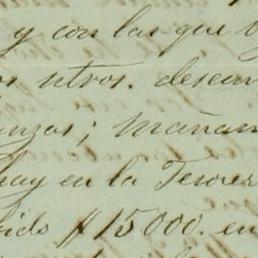 y con las que
os otros. desean
anzas; mañan
hay en la Tesorer
bido $15000. en